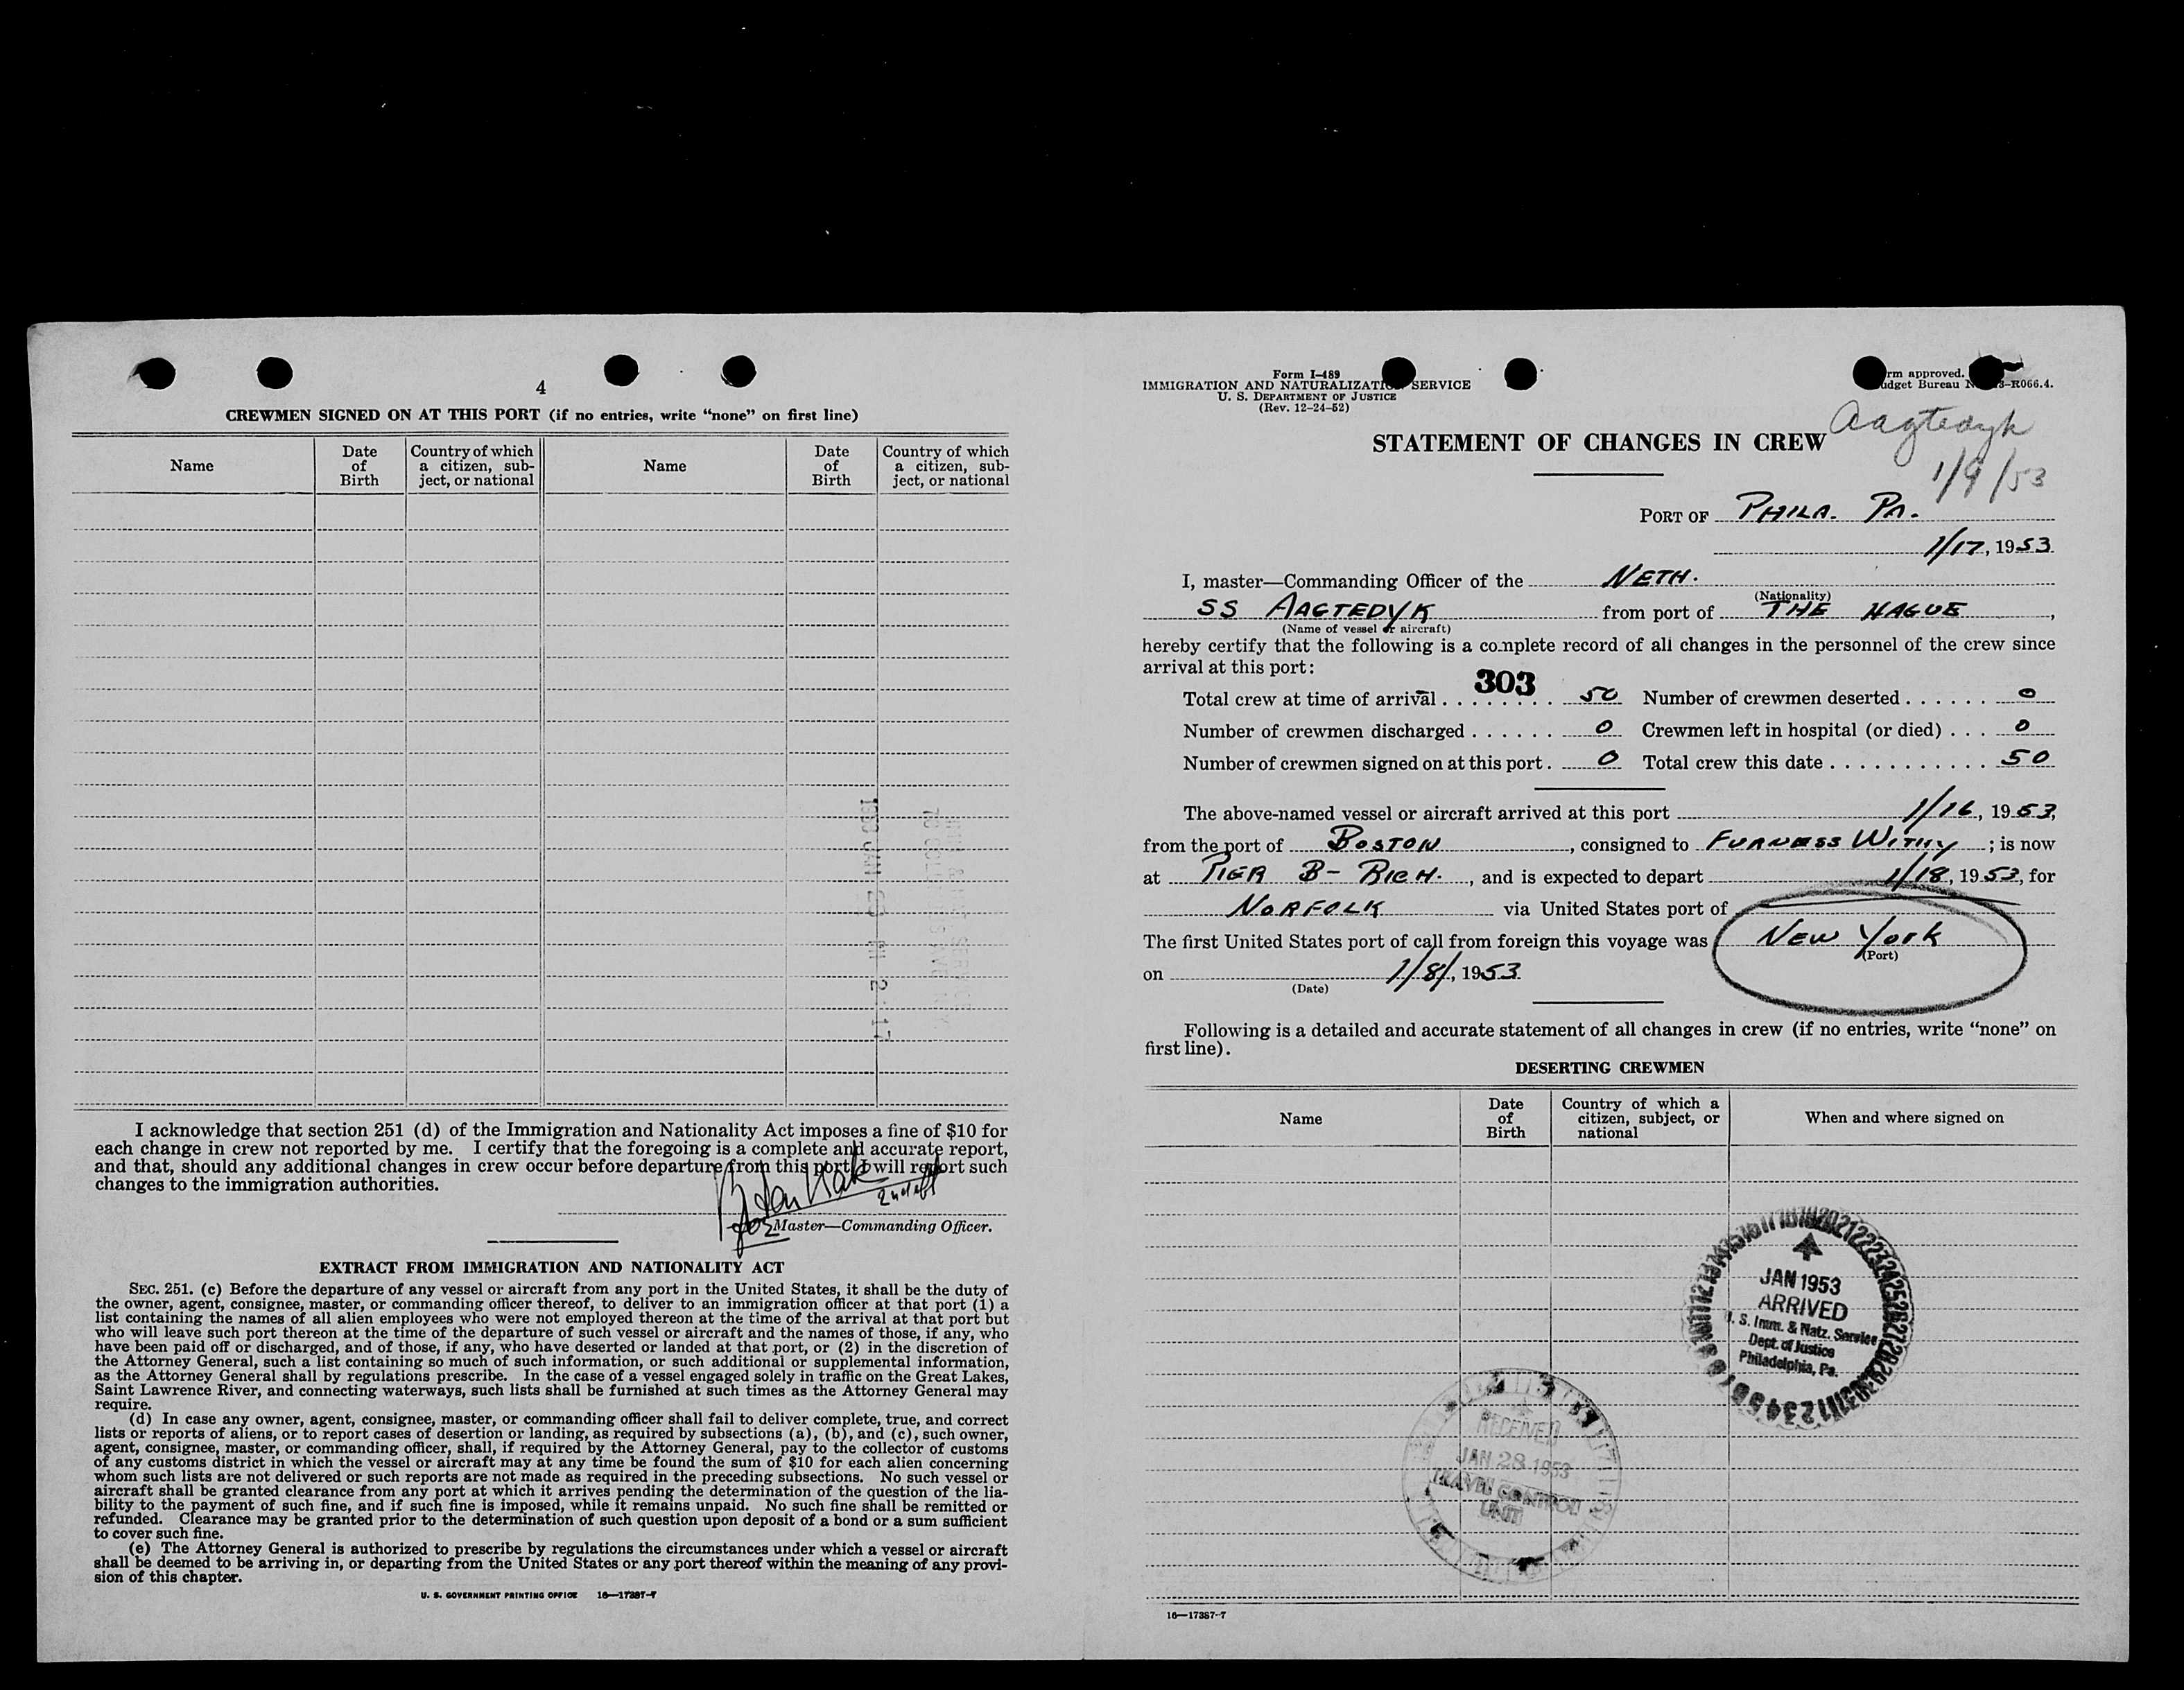 4
CREWMEN SIGNED ON AT THIS PORT (if no entries, write "none" on first line)
Name
Date of Birth
Country of which a citizen, subject, or national
Name
Date of Birth
Country of which a citizen, subject, or national
I acknowledge that section 251 (d) of the Immigration and Nationality Act imposes a fine of $10 for
each change in crew not reported by me. I certify that the foregoing is a complete and accurate report,
and that, should any additional changes in crew occur before departure from this port, I will report such
changes to the immigration authorities.
for Master—Commanding Officer.
EXTRACT FROM IMMIGRATION AND NATIONALITY ACT
SEC. 251. (c) Before the departure of any vessel or aircraft from any port in the United States, it shall be the duty of
the owner, agent, consignee, master, or commanding officer thereof, to deliver to an immigration officer at that port (1) a
list containing the names of all alien employees who were not employed thereon at the time of the arrival at that port but
who will leave such port thereon at the time of the departure of such vessel or aircraft and the names of those, if any, who
have been paid off or discharged, and of those, if any, who have deserted or landed at that port, or (2) in the discretion of
the Attorney General, such a list containing so much of such information, or such additional or supplemental information,
as the Attorney General shall by regulations prescribe. In the case of a vessel engaged solely in traffic on the Great Lakes,
Saint Lawrence River, and connecting waterways, such lists shall be furnished at such times as the Attorney General may
require.
(d) In case any owner, agent, consignee, master, or commanding officer shall fail to deliver complete, true, and correct
lists or reports of aliens, or to report cases of desertion or landing, as required by subsections (a), (b), and (c), such owner,
agent, consignee, master, or commanding officer, shall, if required by the Attorney General, pay to the collector of customs
of any customs district in which the vessel or aircraft may at any time be found the sum of $10 for each alien concerning
whom such lists are not delivered or such reports are not made as required in the preceding subsections. No such vessel or
aircraft shall be granted clearance from any port at which it arrives pending the determination of the question of the lia-
bility to the payment of such fine, and if such fine is imposed, while it remains unpaid. No such fine shall be remitted or
refunded. Clearance may be granted prior to the determination of such question upon deposit of a bond or a sum sufficient
to cover such fine.
(e) The Attorney General is authorized to prescribe by regulations the circumstances under which a vessel or aircraft
shall be deemed to be arriving in, or departing from the United States or any port thereof within the meaning of any provi-
sion of this chapter.
U. S. GOVERNMENT PRINTING OFFICE 16—17387-7
Form I-489
IMMIGRATION AND NATURALIZATION SERVICE
U. S. DEPARTMENT OF JUSTICE
(Rev. 12-24-52)
rm approved.
udget Bureau N 3-R066.4.
Aagtedyk
1/9/53
STATEMENT OF CHANGES IN CREW
PORT OF PHILA. PA.
1/17, 1953
I, master—Commanding Officer of the NETH.
(Nationality)
SS AAGTEDYK from port of THE HAGUE,
(Name of vessel or aircraft)
hereby certify that the following is a complete record of all changes in the personnel of the crew since
arrival at this port:
303
Total crew at time of arrival . . . . . . . . 50 Number of crewmen deserted . . . . . . 0
Number of crewmen discharged . . . . . . 0 Crewmen left in hospital (or died) . . . 0
Number of crewmen signed on at this port . 0 Total crew this date . . . . . . . . . . . . 50
The above-named vessel or aircraft arrived at this port 1/16, 1953,
from the port of BOSTON, consigned to FURNESS WITHY; is now
at PIER B- RICH., and is expected to depart 1/18, 1953, for
NORFOLK via United States port of
The first United States port of call from foreign this voyage was NEW YORK
(Port)
on 1/8/, 1953
(Date)
Following is a detailed and accurate statement of all changes in crew (if no entries, write "none" on
first line).
DESERTING CREWMEN
Name
Date of Birth
Country of which a citizen, subject, or national
When and where signed on
JAN 1953
ARRIVED
U. S. Imm. & Natz. Service
Dept. of Justice
Philadelphia, Pa.
RECEIVED
JAN 28 1953
TRAVEL CONTROL
UNIT
16—17387-7